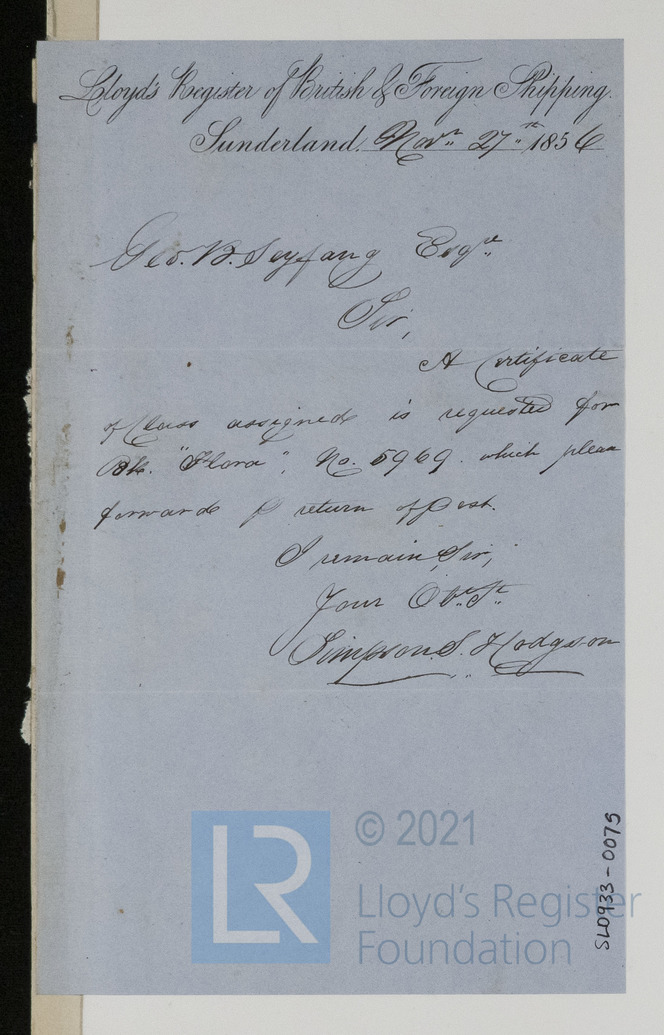 Lloyd's Register of British & Foreign Shipping.
Sunderland. Novr. 27th 1856
Geo. B. Seyfang Esqre
Sir,
A Certificate
of Class assigned is requested for
Bk. "Flora", No. 5969. which please
forward p return of Post.
I remain, Sir,
Your Obt. St.
Simpson S. Hodgson
LR
© 2021
Lloyd's Register
Foundation
SLD933-0075